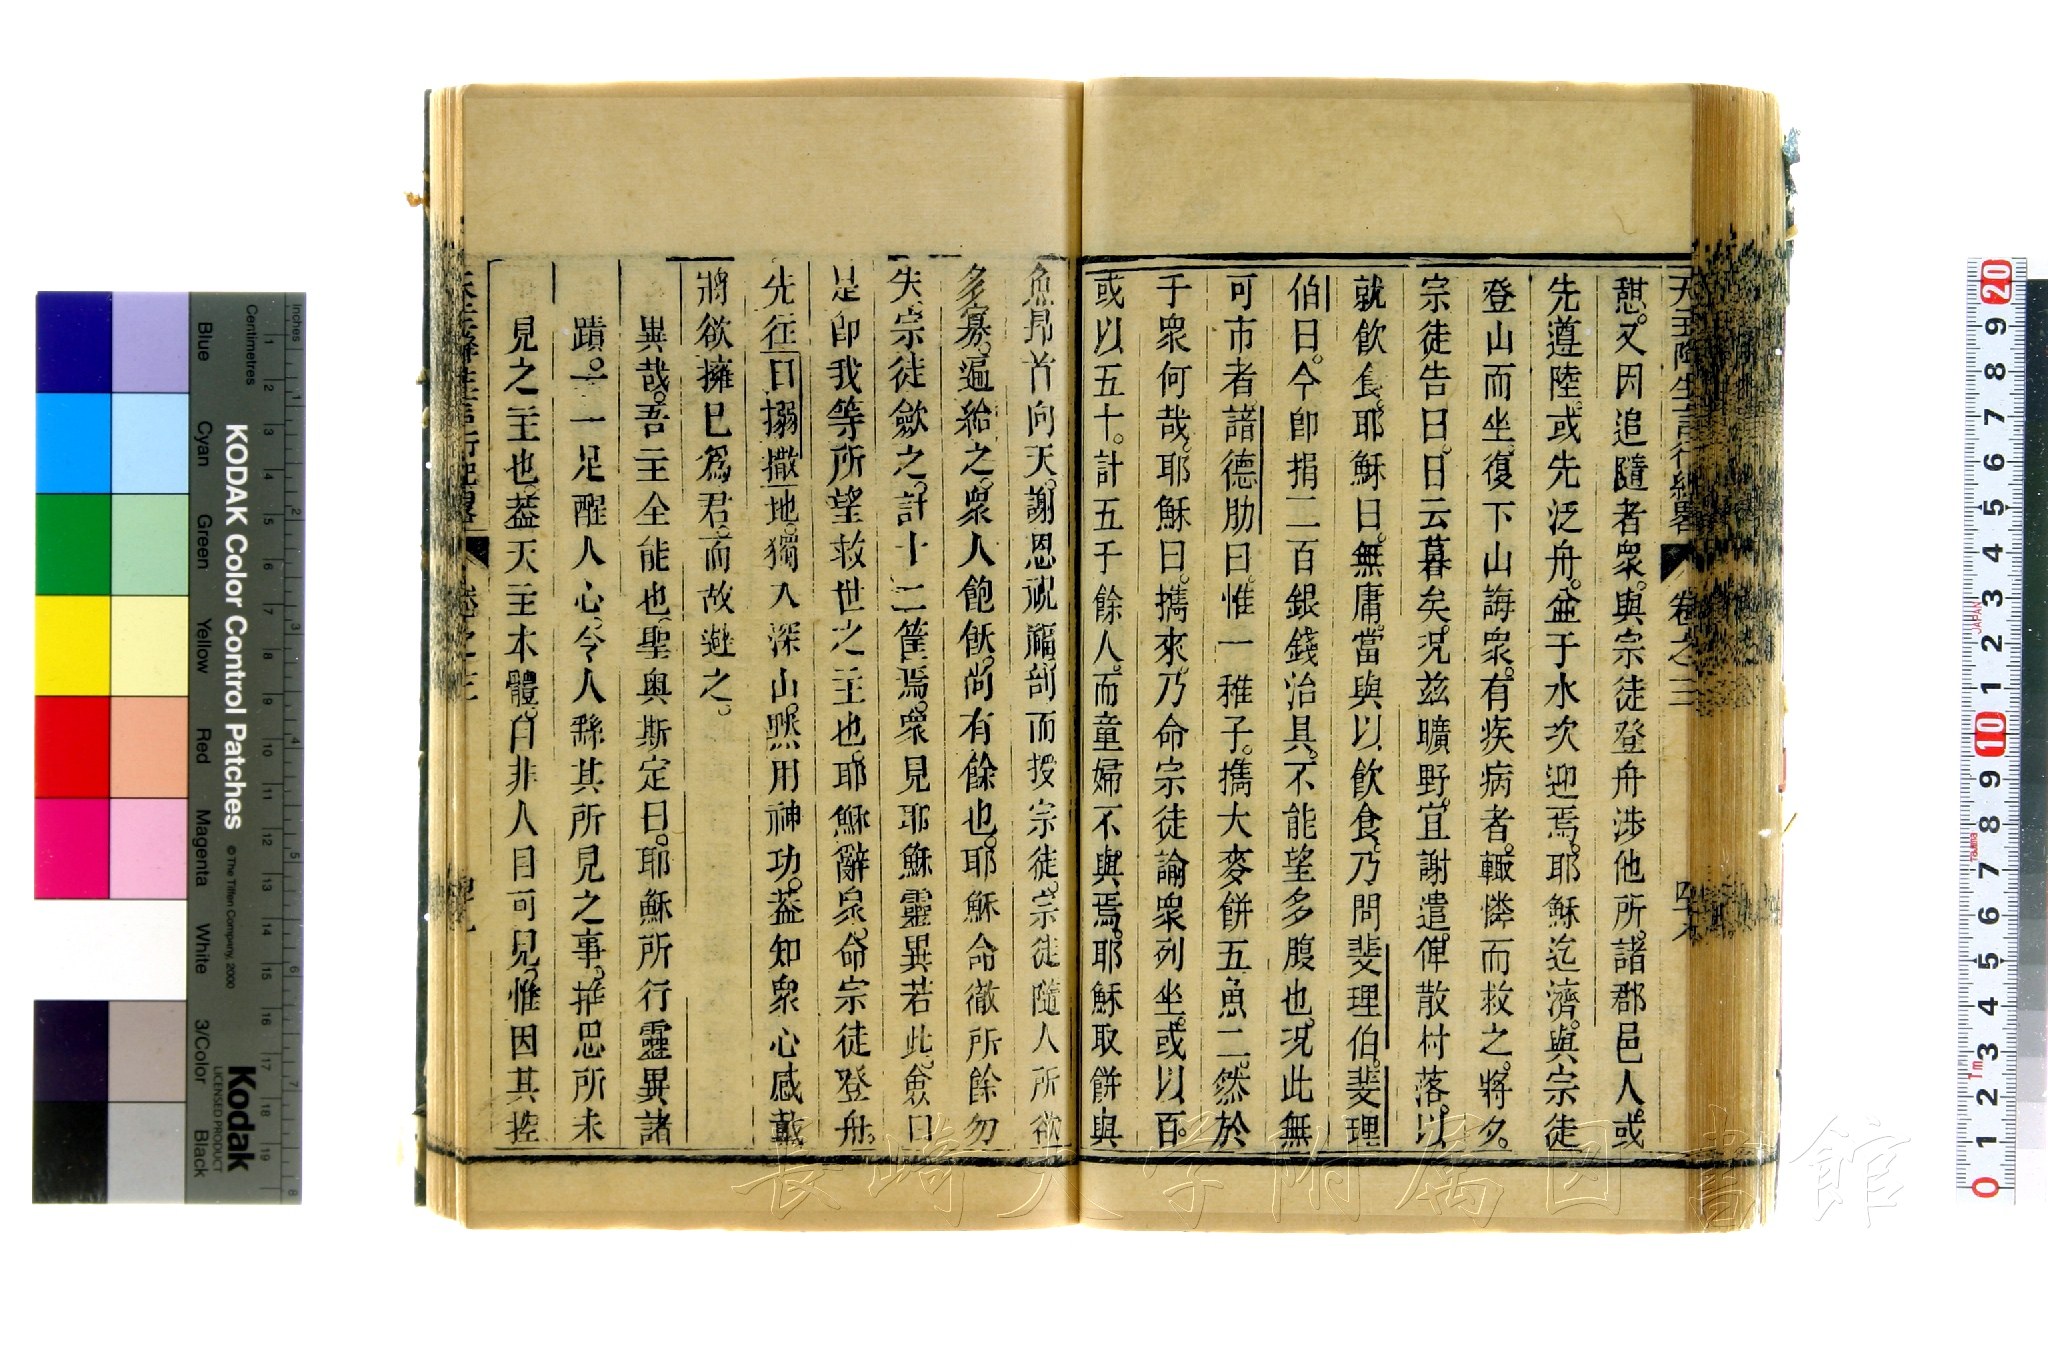 天主降生言行紀畧 卷之三
憇。又因追隨者衆。與宗徒登舟涉他所。諸郡邑人。或
先遵陸。或先泛舟。並于水次迎焉。耶穌迄濟。與宗徒
登山而坐。復下山誨衆。有疾病者。輙憐而救之。將夕。
宗徒告曰。日云暮矣。况兹曠野。宜謝遣。俾散村落。以
就飲食。耶穌曰。無庸。當與以飲食。乃問斐理伯。斐理
伯曰。今卽捐二百銀錢治具。不能望多腹也。况此無
可市者。諳德肋曰。惟一稚子。攜大麥餅五魚二。然於
千衆何哉。耶穌曰。攜來。乃命宗徒諭衆列坐。或以百。
或以五十。計五千餘人。而童婦不與焉。耶穌取餅與
魚。昂首向天。謝恩祝福。剖而授宗徒。宗徒隨人所欲
多寡。遍給之。衆人飽飫。尚有餘也。耶穌命徹所餘勿
失。宗徒歛之。計十二筐焉。衆見耶穌靈異若此。僉曰
是卽我等所望救世之主也。耶穌辭衆。命宗徒登舟。
先往曰搦撒地。獨入深山。黙用神功。葢知衆心感戴
將欲擁已爲君。而故避之。
異哉。吾主全能也。聖奥斯定曰。耶穌所行靈異諸
蹟。一一足醒人心。令人繇其所見之事。推思所未
見之主也。葢天主本體。自非人目可見。惟因其控
Inches
Centimetres
KODAK Color Control Patches
© The Tiffen Company, 2000
Kodak
LICENSED PRODUCT
Blue
Cyan
Green
Yellow
Red
Magenta
White
3/Color
Black
長崎大学附属図書館